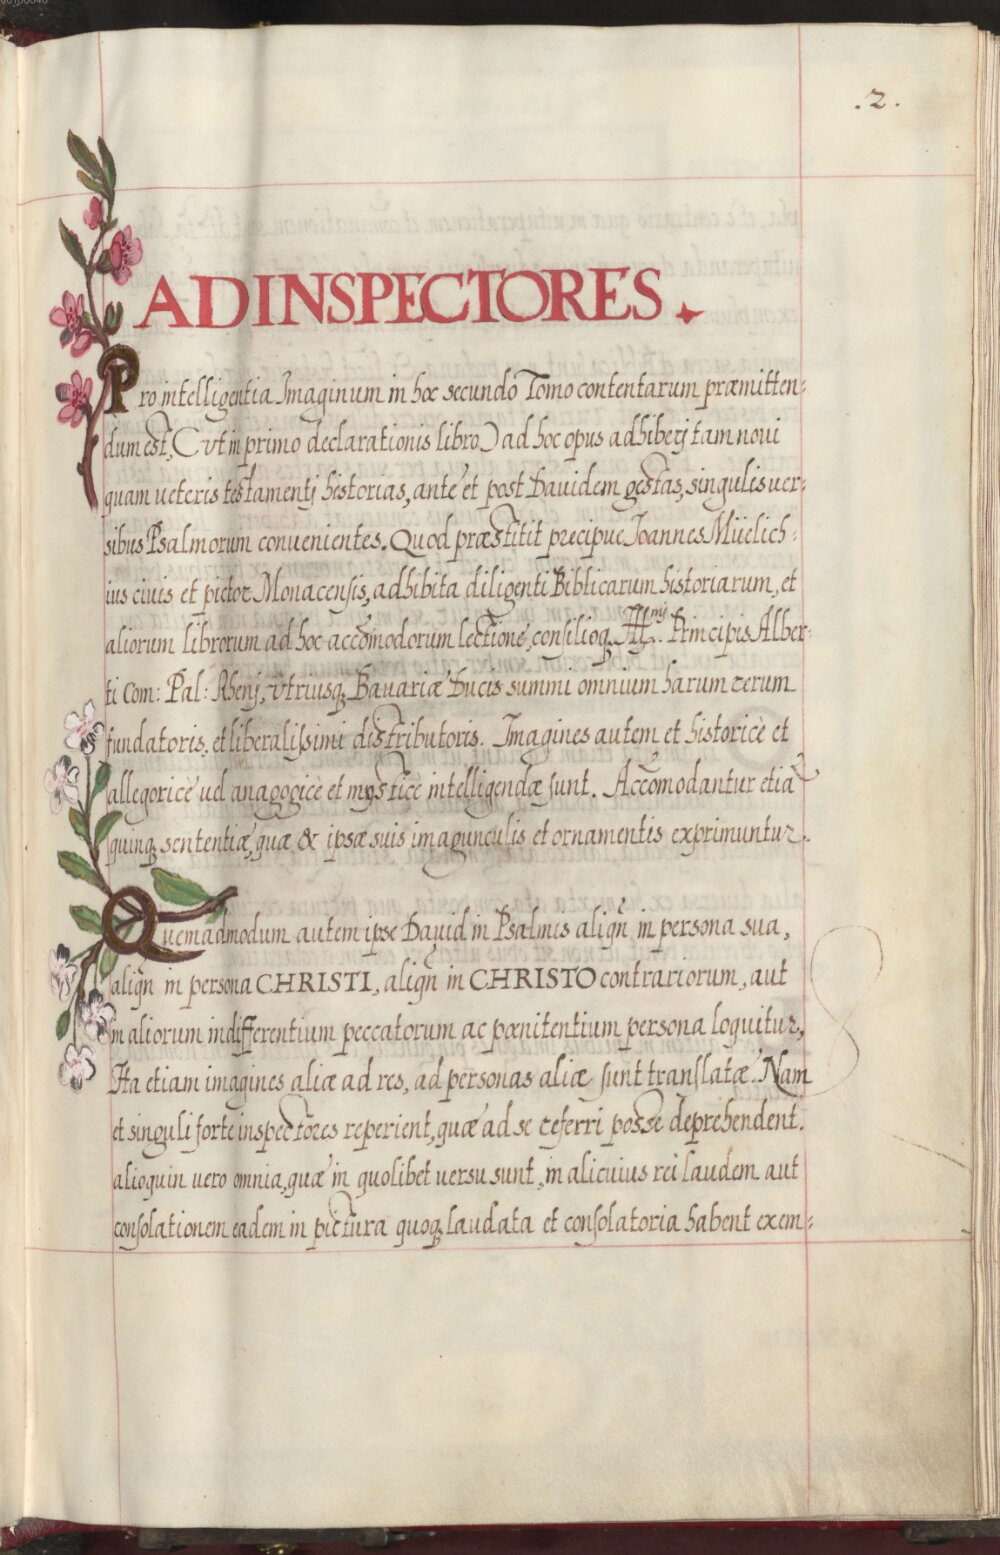 .2.
AD INSPECTORES.
Pro intelligentia Imaginum in hoc secundo Tomo contentarum præmitten-
dum est, (vt in primo declarationis libro) ad hoc opus adhiberj tam noui
quam ueteris testamentj historias, ante et post Dauidem gestas, singulis uer-
sibus Psalmorum conuenientes. Quod præstitit precipue Ioannes Müelich-
ius ciuis et pictor Monacensis, adhibita diligenti Biblicarum historiarum, et
aliorum librorum ad hoc accõmodorum lectione, consilioq. Ill.mj. Principis Alber-
ti Com: Pal: Rhenj, vtriusq. Bauariæ Ducis summi omnium harum rerum
fundatoris, et liberalissimi distributoris. Imagines autem et historicè et
allegoricè uel anagogicè et mysticè intelligendæ sunt. Accõmodantur etiã
quinq. sententiæ, quæ & ipsæ suis imagunculis et ornamentis exprimuntur.
Quemadmodum autem ipse Dauid in Psalmis aliqñ in persona sua,
aliqñ in persona CHRISTI, aliqñ in CHRISTO contrariorum, aut
in aliorum indifferentium peccatorum ac pœnitentium persona loquitur,
Ita etiam imagines aliæ ad res, ad personas aliæ sunt translatæ. Nam
et singuli forte inspectores reperient, quæ ad se referri posse deprehendent.
alioquin uero omnia, quæ in quolibet uersu sunt, in alicuius rei laudem aut
consolationem eadem in pictura quoq. laudata et consolatoria habent exem-